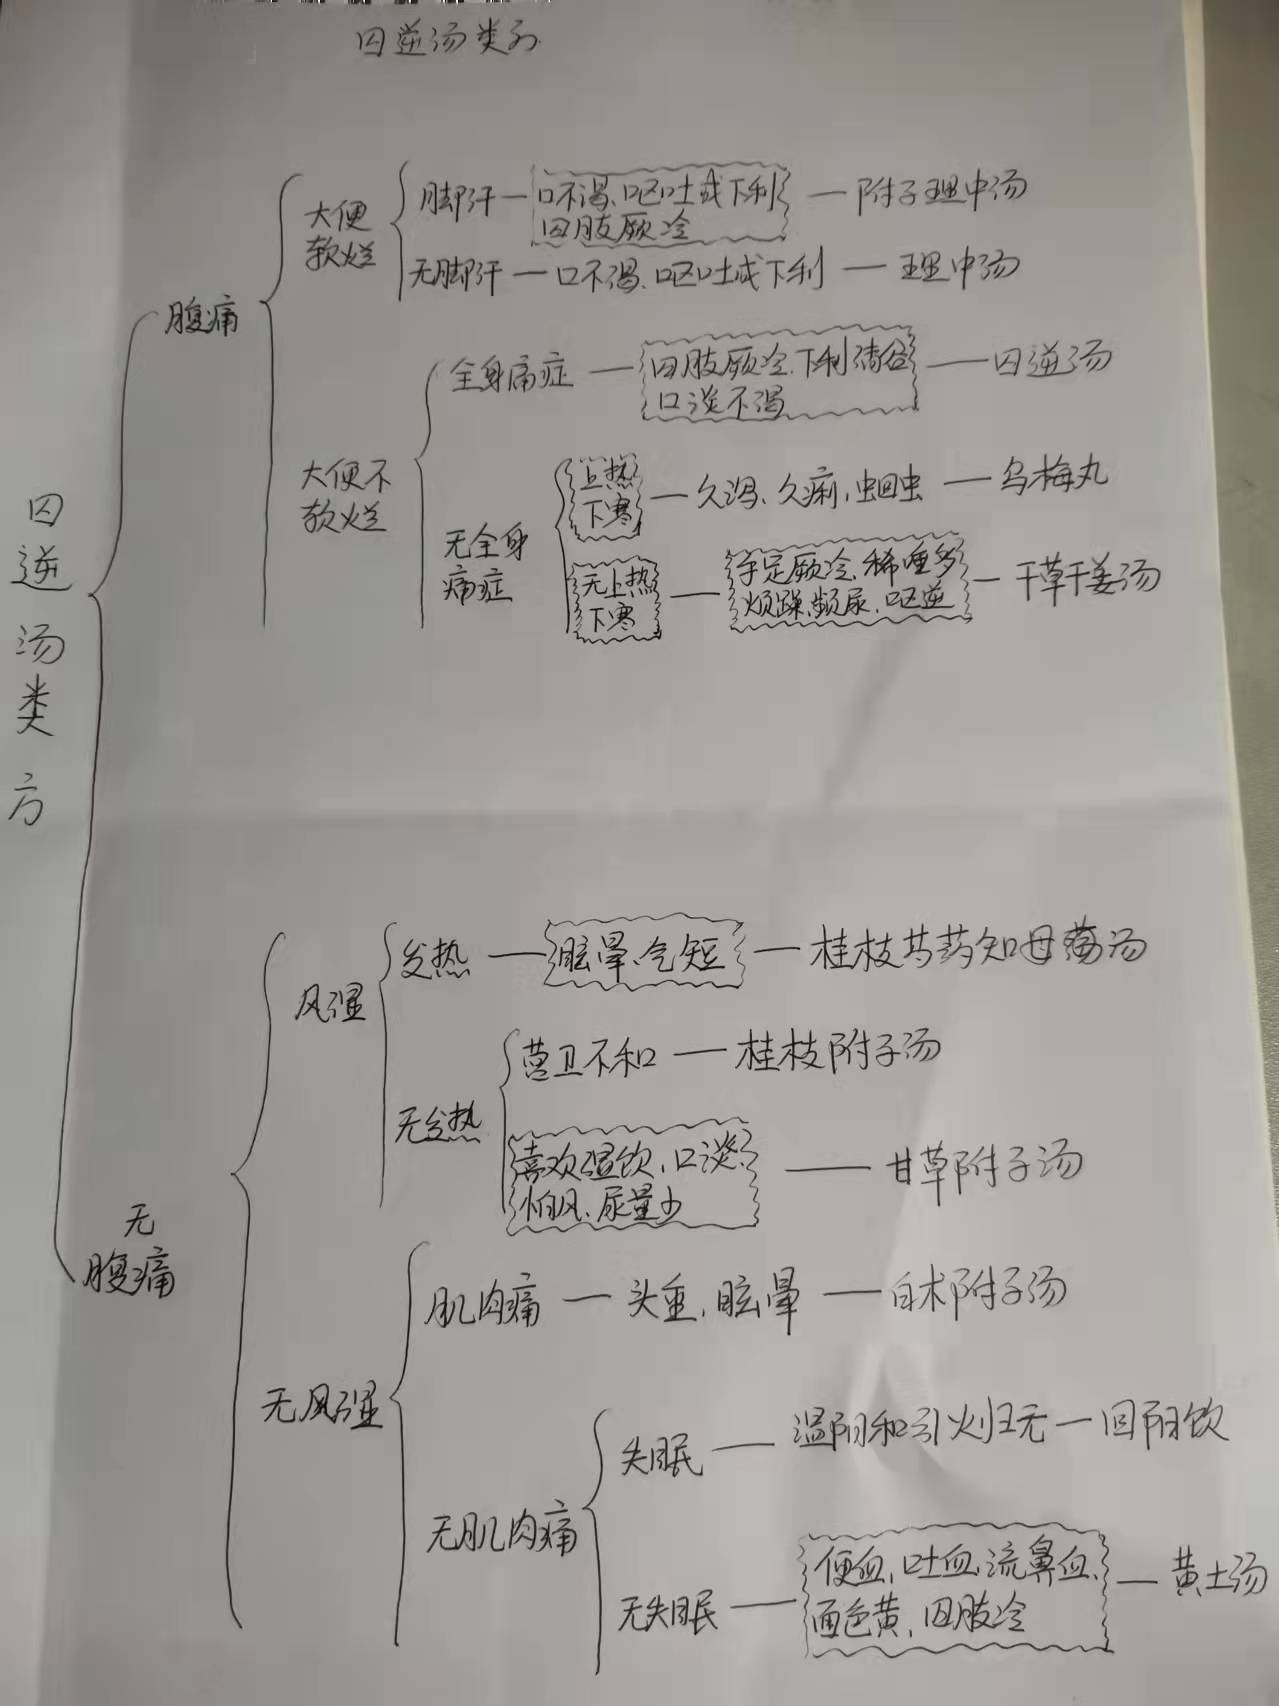 四逆汤类方
四逆汤类方
腹痛
大便
软烂
脚汗—口不渴、呕吐或下利—附子理中汤
四肢厥冷
无脚汗—口不渴、呕吐或下利—理中汤
大便不
软烂
全身痛症—四肢厥冷、下利清谷—四逆汤
口淡不渴
无全身
痛症
上热
下寒
—久泻、久痢、蛔虫—乌梅丸
无上热
下寒
—手足厥冷、稀唾多
烦躁、频尿、呕逆
—干草干姜汤
无
腹痛
风湿
发热—眩晕、气短—桂枝芍药知母汤
无发热
营卫不和—桂枝附子汤
喜欢温饮、口淡、
怕风、尿量少
—甘草附子汤
无风湿
肌肉痛—头重、眩晕—白术附子汤
无肌肉痛
失眠—温阳和引火归元—回阳饮
无失眠—便血、吐血、流鼻血、
面色黄、四肢冷
—黄土汤